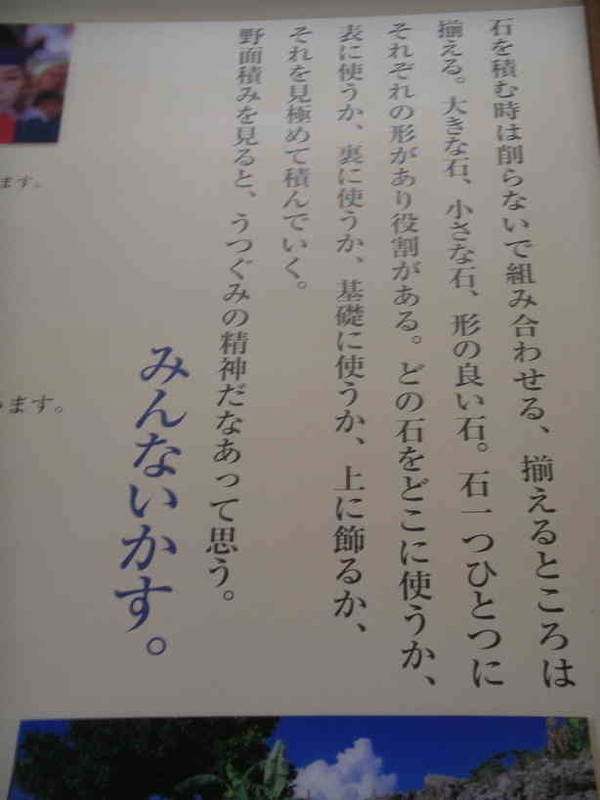 石を積む時は削らないで組み合わせる、揃えるところは
揃える。大きな石、小さな石、形の良い石。石一つひとつに
それぞれの形があり役割がある。どの石をどこに使うか、
表に使うか、裏に使うか、基礎に使うか、上に飾るか、
それを見極めて積んでいく。
野面積みを見ると、うつぐみの精神だなあって思う。
みんないかす。
ます。
ます。